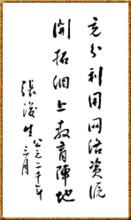 充分利用网络资源
开拓网上教育阵地
張浚生
公元二千年
三月